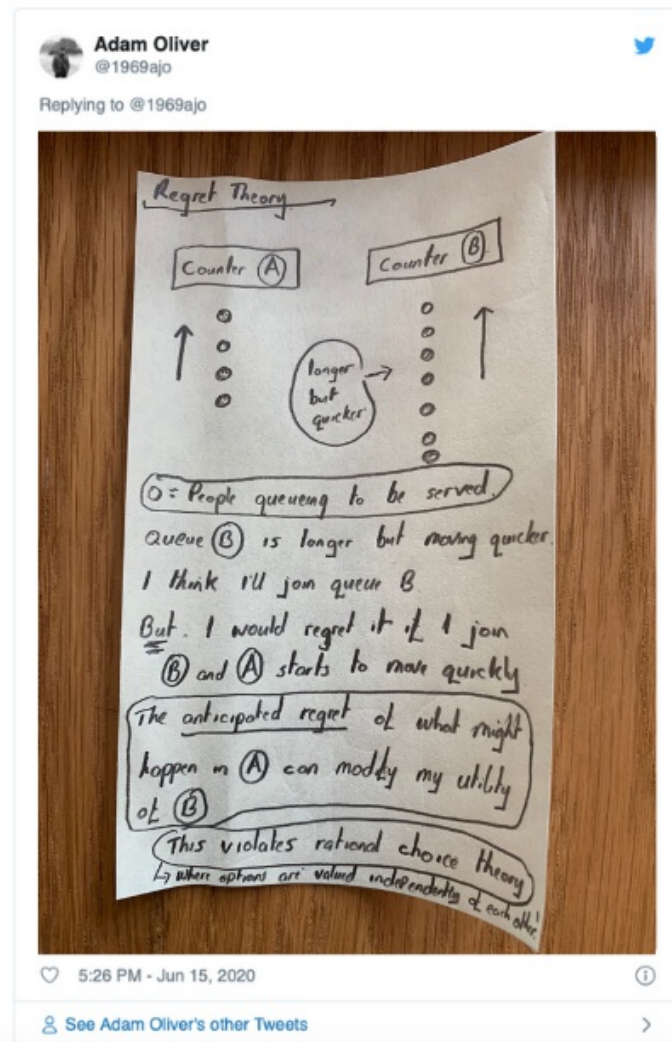 Adam Oliver
@1969ajo
Replying to @1969ajo
Regret Theory
Counter A
Counter B
longer
but
quicker
O = People queueing to be served.
Queue B is longer but moving quicker.
I think I'll join queue B
But. I would regret it if I join
B and A starts to move quickly
The anticipated regret of what might
happen in A can modify my utility
of B
This violates rational choice theory
↳ where options are valued independently of each other!
5:26 PM - Jun 15, 2020
See Adam Oliver's other Tweets